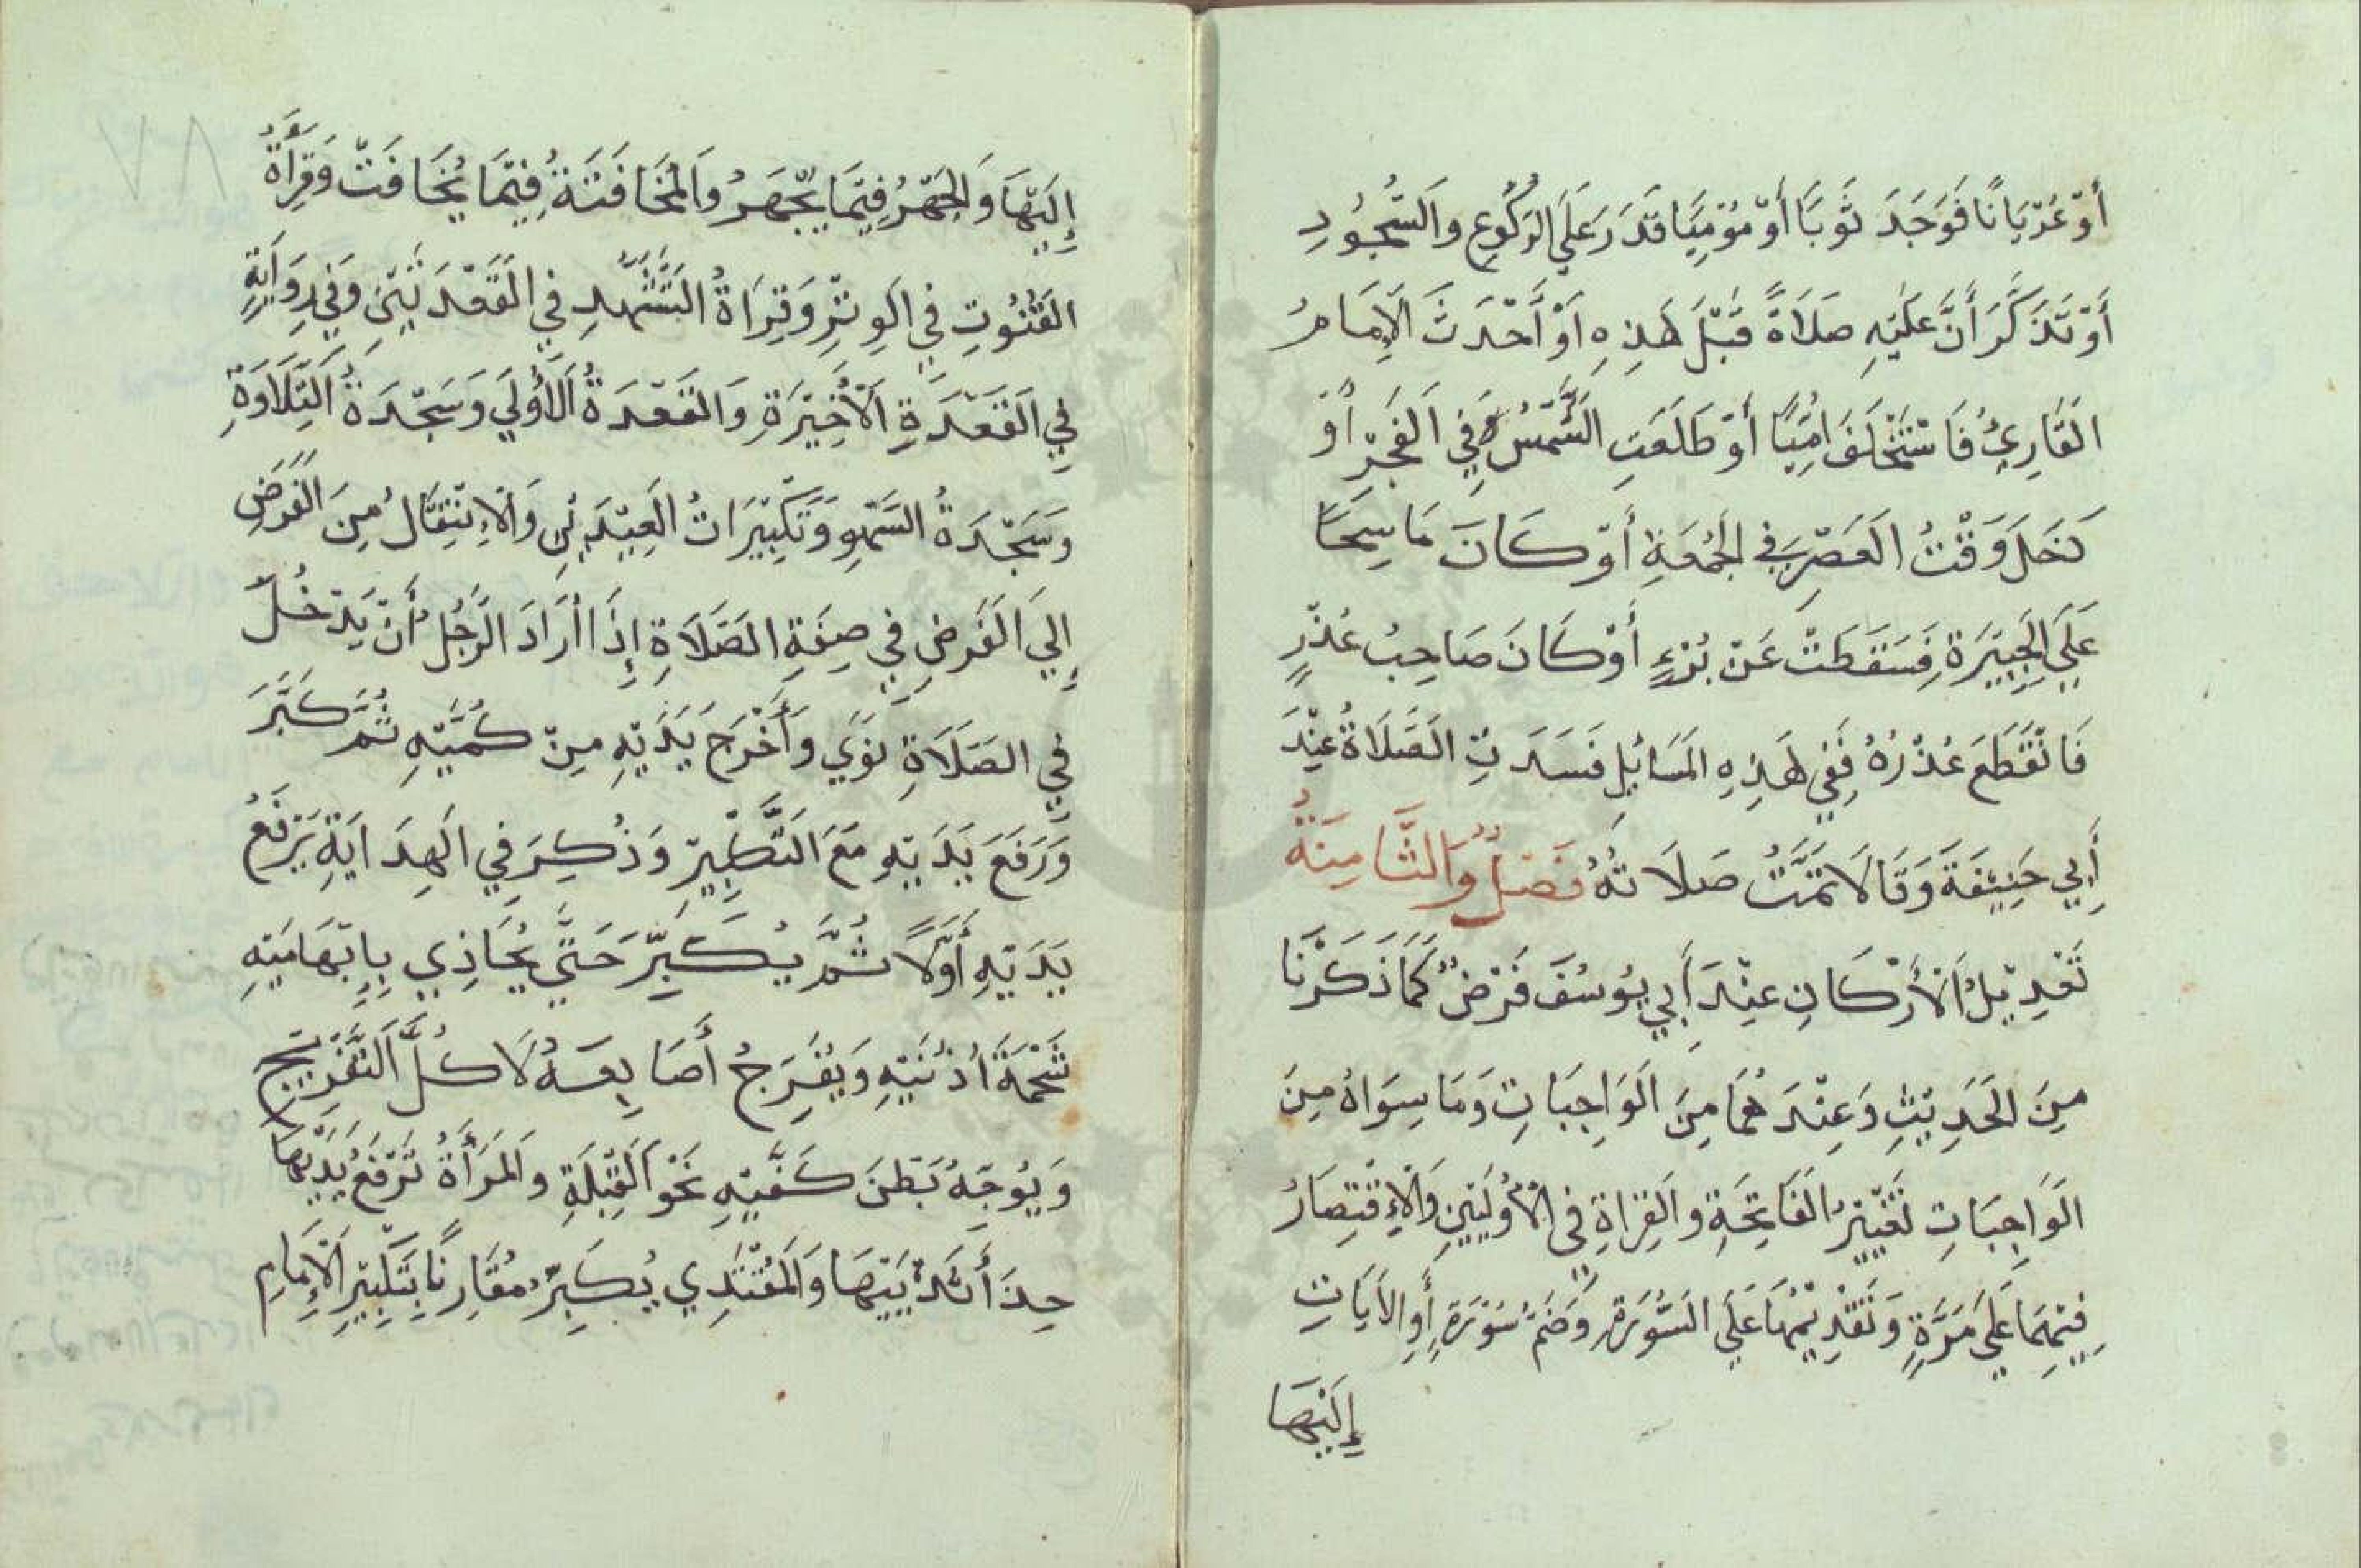 أَوْ عُرْيَانًا فَوَجَدَ ثَوْبًا أَوْ مُوْمِيًا قَدَرَ عَلَى الرُّكُوعِ وَالسُّجُودِ
أَوْ تَذَكَّرَ أَنَّ عَلَيْهِ صَلَاةً قَبْلَ هَذِهِ أَوْ أَحْدَثَ الْإِمَامُ
الْقَارِئُ فَاسْتَخْلَفَ أُمِّيًّا أَوْ طَلَعَتِ الشَّمْسُ فِي الْفَجْرِ أَوْ
دَخَلَ وَقْتُ الْعَصْرِ فِي الْجُمُعَةِ أَوْ كَانَ مَاسِحًا
عَلَى الْجَبِيْرَةِ فَسَقَطَتْ عَنْ بُرْءٍ أَوْ كَانَ صَاحِبُ عُذْرٍ
فَانْقَطَعَ عُذْرُهُ فَفِي هَذِهِ الْمَسَائِلِ فَسَدَتِ الصَّلَاةُ عِنْدَ
أَبِي حَنِيْفَةَ وَقَالَا تَمَّتْ صَلَاتُهُ فَصْلٌ وَالثَّامِنَةُ
تَعْدِيْلُ الْأَرْكَانِ عِنْدَ أَبِي يُوْسُفَ فَرْضٌ كَمَا ذَكَرْنَا
مِنَ الْحَدِيْثِ وَعِنْدَهُمَا مِنَ الْوَاجِبَاتِ وَمَا سِوَاهُ مِنَ
الْوَاجِبَاتِ تَعْيِيْنُ الْفَاتِحَةِ وَالْقِرَاةِ فِي الْأُوْلَيَيْنِ وَالْإِقْتِصَارُ
فِيْهِمَا عَلَى مَرَّةٍ وَتَقْدِيْمُهَا عَلَى السُّوْرَةِ وَضَمُّ سُوْرَةٍ أَوِ الْآيَاتِ
إِلَيْهَا
إِلَيْهَا وَالْجَهْرُ فِيْمَا يُجْهَرُ وَالْمُخَافَتَةُ فِيْمَا يُخَافَتْ وَقِرَأَةُ
الْقُنُوتِ فِي الْوِتْرِ وَقِرَاةُ التَّشَهُّدِ فِي الْقَعْدَتَيْنِ وَفِي رِوَايَةٍ
فِي الْقَعْدَةِ الْأَخِيْرَةِ وَالْقَعْدَةُ الْأُوْلَى وَسَجْدَةُ التِّلَاوَةِ
وَسَجْدَةُ السَّهْوِ وَتَكْبِيْرَاتُ الْعِيْدَيْنِ وَالْإِنْتِقَالُ مِنَ الْفَرْضِ
إِلَى الْفَرْضِ فِي صِفَةِ الصَّلَاةِ إِذَا أَرَادَ الرَّجُلُ أَنْ يَدْخُلَ
فِي الصَّلَاةِ نَوَى وَأَخْرَجَ يَدَيْهِ مِنْ كُمَّيْهِ ثُمَّ كَبَّرَ
وَرَفَعَ يَدَيْهِ مَعَ التَّكْبِيْرِ وَذُكِرَ فِي الْهِدَايَةِ يَرْفَعُ
يَدَيْهِ أَوَّلًا ثُمَّ يُكَبِّرَ حَتَّى يُحَاذِي بِإِبْهَامَيْهِ
شَحْمَةَ أُذُنَيْهِ وَيُفَرِّجُ أَصَابِعَهُ لَا كُلَّ التَّفْرِيْجِ
وَيُوَجِّهُ بَطْنَ كَفَّيْهِ نَحْوَ الْقِبْلَةِ وَالْمَرْأَةُ تَرْفَعُ يَدَيْهَا
حِذَاءَ ثَدْيَيْهَا وَالْمُقْتَدِي يُكَبِّرُ مُقَارِنًا بِتَكْبِيْرِ الْإِمَامِ